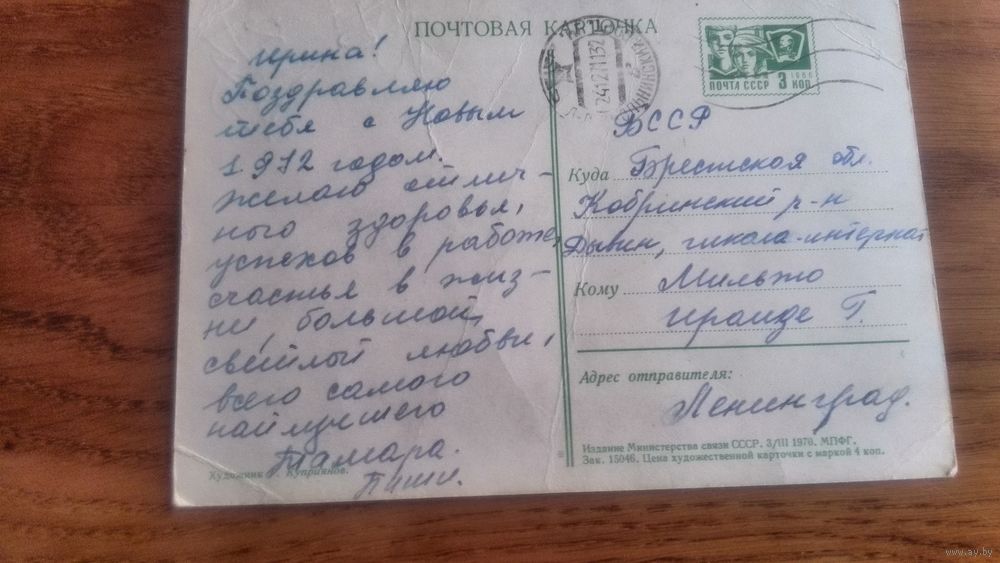 ПОЧТОВАЯ КАРТОЧКА
Ирина!
Поздравляю
тебя с Новым
1972 годом.
Желаю отлич-
ного здоровья,
успехов в работе,
счастья в жиз-
ни, большой,
светлой любви,
всего самого
наилучшего
Тамара.
Пиши.
Художник Куприянов.
1966
ПОЧТА СССР 3 КОП
БССР
Куда Брестская обл.
Кобринский р-н
Дывин, школа-интернат
Кому Мильто
Ираиде Г.
Адрес отправителя:
Ленинград.
Издание Министерства связи СССР. 3/III 1970. МПФГ.
Зак. 15046. Цена художественной карточки с маркой 4 коп.
www.ay.by